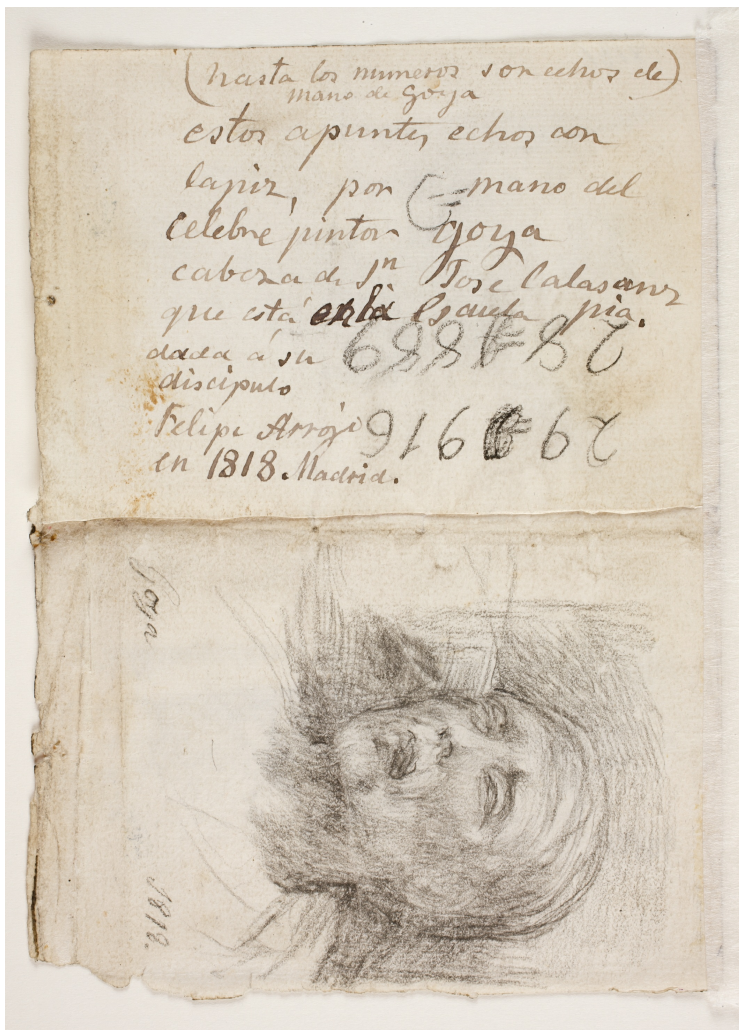 (hasta los numeros son echos de)
mano de Goya
estos apuntes echos con
lapiz, por mano del
celebre pintor Goya
cabeza de Sn Jose Calasanz
que está en la Escuela pia.
dada á su
discipulo
Felipe Arrojo
en 1818. Madrid.
Goya 1818.